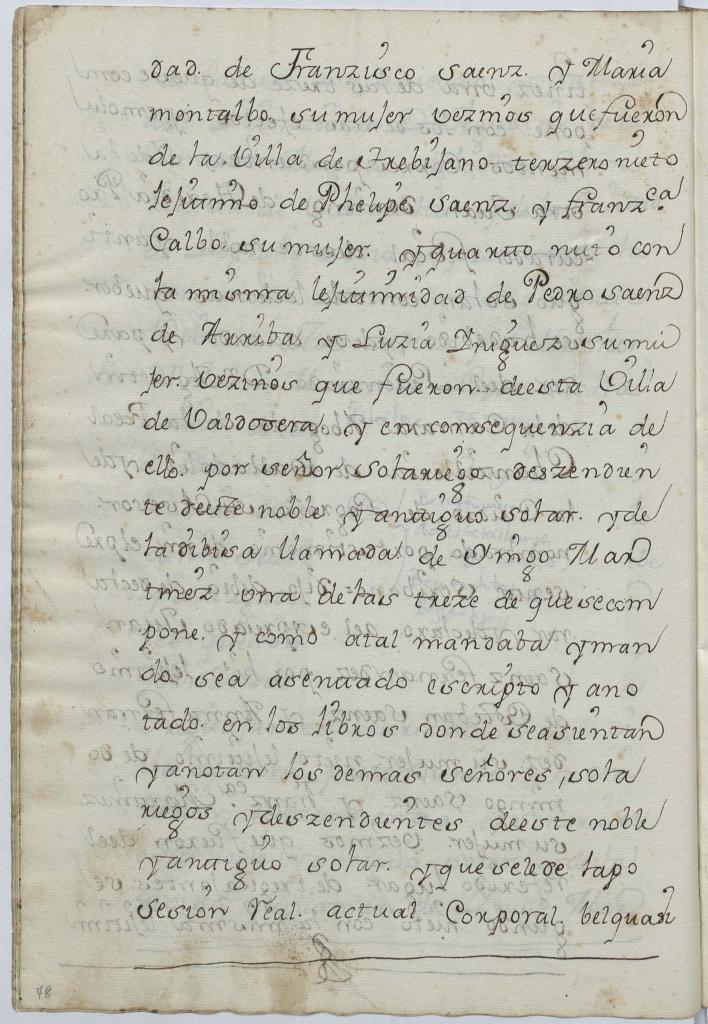 dad. de Franzisco saenz. y Maria
montalbo. su mujer vezinos que fueron
de la Villa de trebijano terzero nieto
lejitimo de Phelipe saenz. y franz.ca
Calbo. su mujer. y quartto nieto con
la misma lejitimidad de Pedro saenz
de Arriba, y Luzia Yniguez su mu
jer. vezinos que fueron. deesta Villa
de Valdosera. y en consequenzia de
ello. por señor solariego deszendien
te deeste noble y antiguo solar. y de
la dibisa llamada. de Omingo Mar
tinez una de las treze de que se com
pone. y como atal mandaba y man
do. sea asentado escripto y ano
tado. en los libros donde se asientan
y anotan los demas señores, sola
riegos y deszendientes deeste noble
y antiguo solar. y que se le de la po
sesion Real. actual Corporal. bel quasi
78